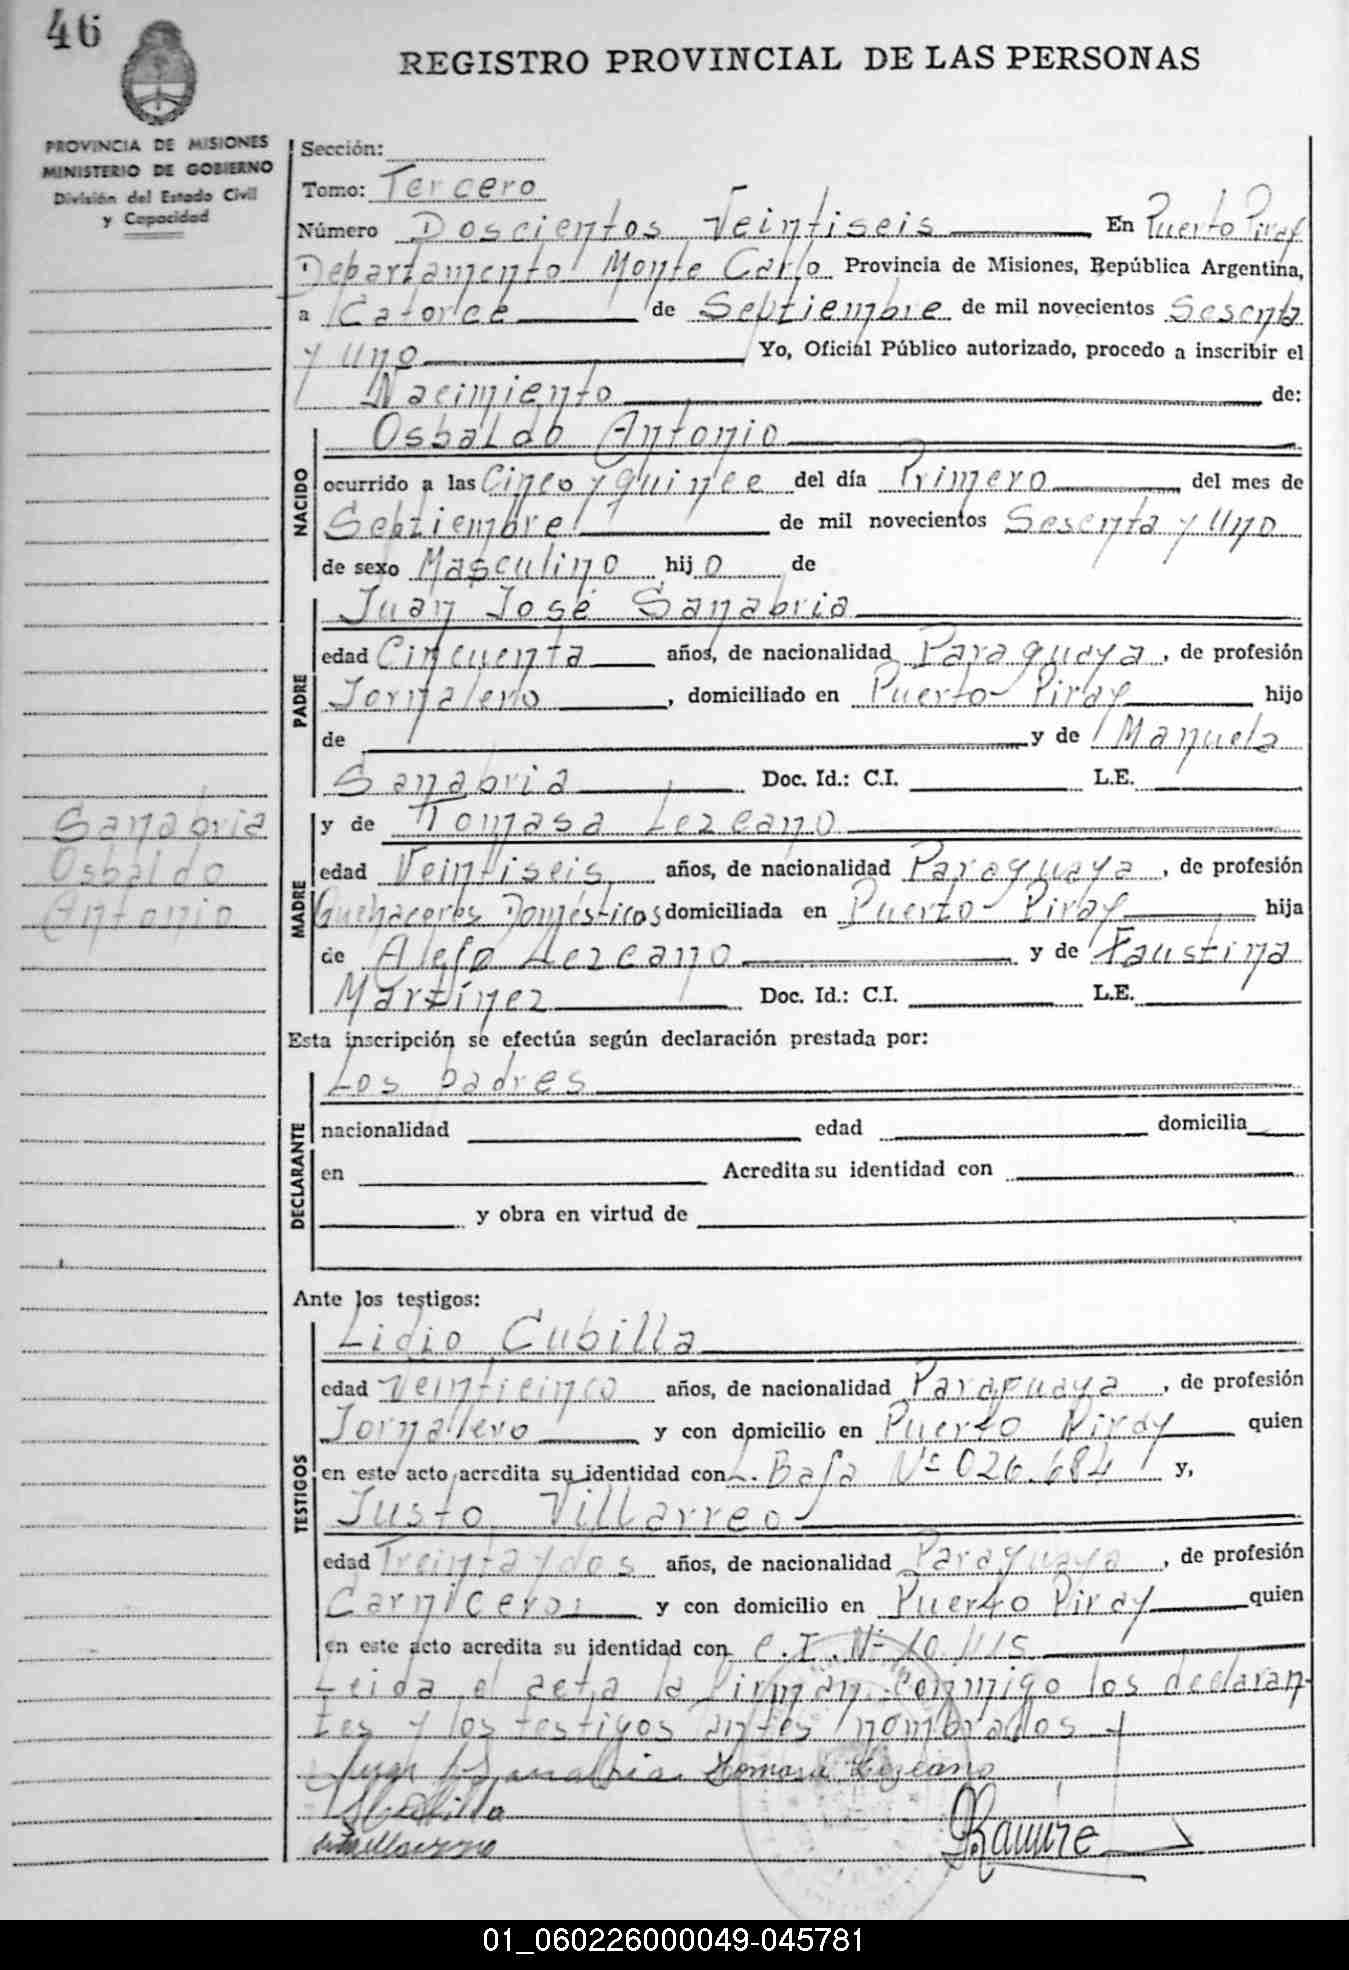 46
REGISTRO PROVINCIAL DE LAS PERSONAS
PROVINCIA DE MISIONES
MINISTERIO DE GOBIERNO
División del Estado Civil
y Capacidad
Sección:
Tomo: Tercero
Número Doscientos Veintiseis En Puerto Piray
Departamento Monte Carlo Provincia de Misiones, República Argentina,
a Catorce de Septiembre de mil novecientos Sesenta
y Uno Yo, Oficial Público autorizado, procedo a inscribir el
Nacimiento de:
NACIDO
Osbaldo Antonio
ocurrido a las Cinco y quince del día Primero del mes de
Septiembre de mil novecientos Sesenta y Uno
de sexo Masculino hijo de
PADRE
Juan José Sanabria
edad Cincuenta años, de nacionalidad Paraguaya, de profesión
Jornalero, domiciliado en Puerto Piray hijo
de y de Manuela
Sanabria Doc. Id.: C.I. L.E.
Sanabria
Osbaldo
Antonio
MADRE
y de Tomasa Lezcano
edad Veintiseis años, de nacionalidad Paraguaya, de profesión
Quehaceres Domésticos domiciliada en Puerto Piray hija
de Alejo Lezcano y de Faustina
Martínez Doc. Id.: C.I. L.E.
Esta inscripción se efectúa según declaración prestada por:
DECLARANTE
Los padres
nacionalidad edad domicilia
en Acredita su identidad con
y obra en virtud de
Ante los testigos:
TESTIGOS
Lidio Cubilla
edad Veinticinco años, de nacionalidad Paraguaya, de profesión
Jornalero y con domicilio en Puerto Piray quien
en este acto acredita su identidad con L. Baja Nº 026.684 y,
Justo Villarreo
edad Treinta y dos años, de nacionalidad Paraguaya, de profesión
Carnicero y con domicilio en Puerto Piray quien
en este acto acredita su identidad con C.I. Nº 10.115
Leida el acta la firman conmigo los declaran-
tes y los testigos antes nombrados
Juan J Sanabria Tomasa Lezcano
Ramire
01_060226000049-045781